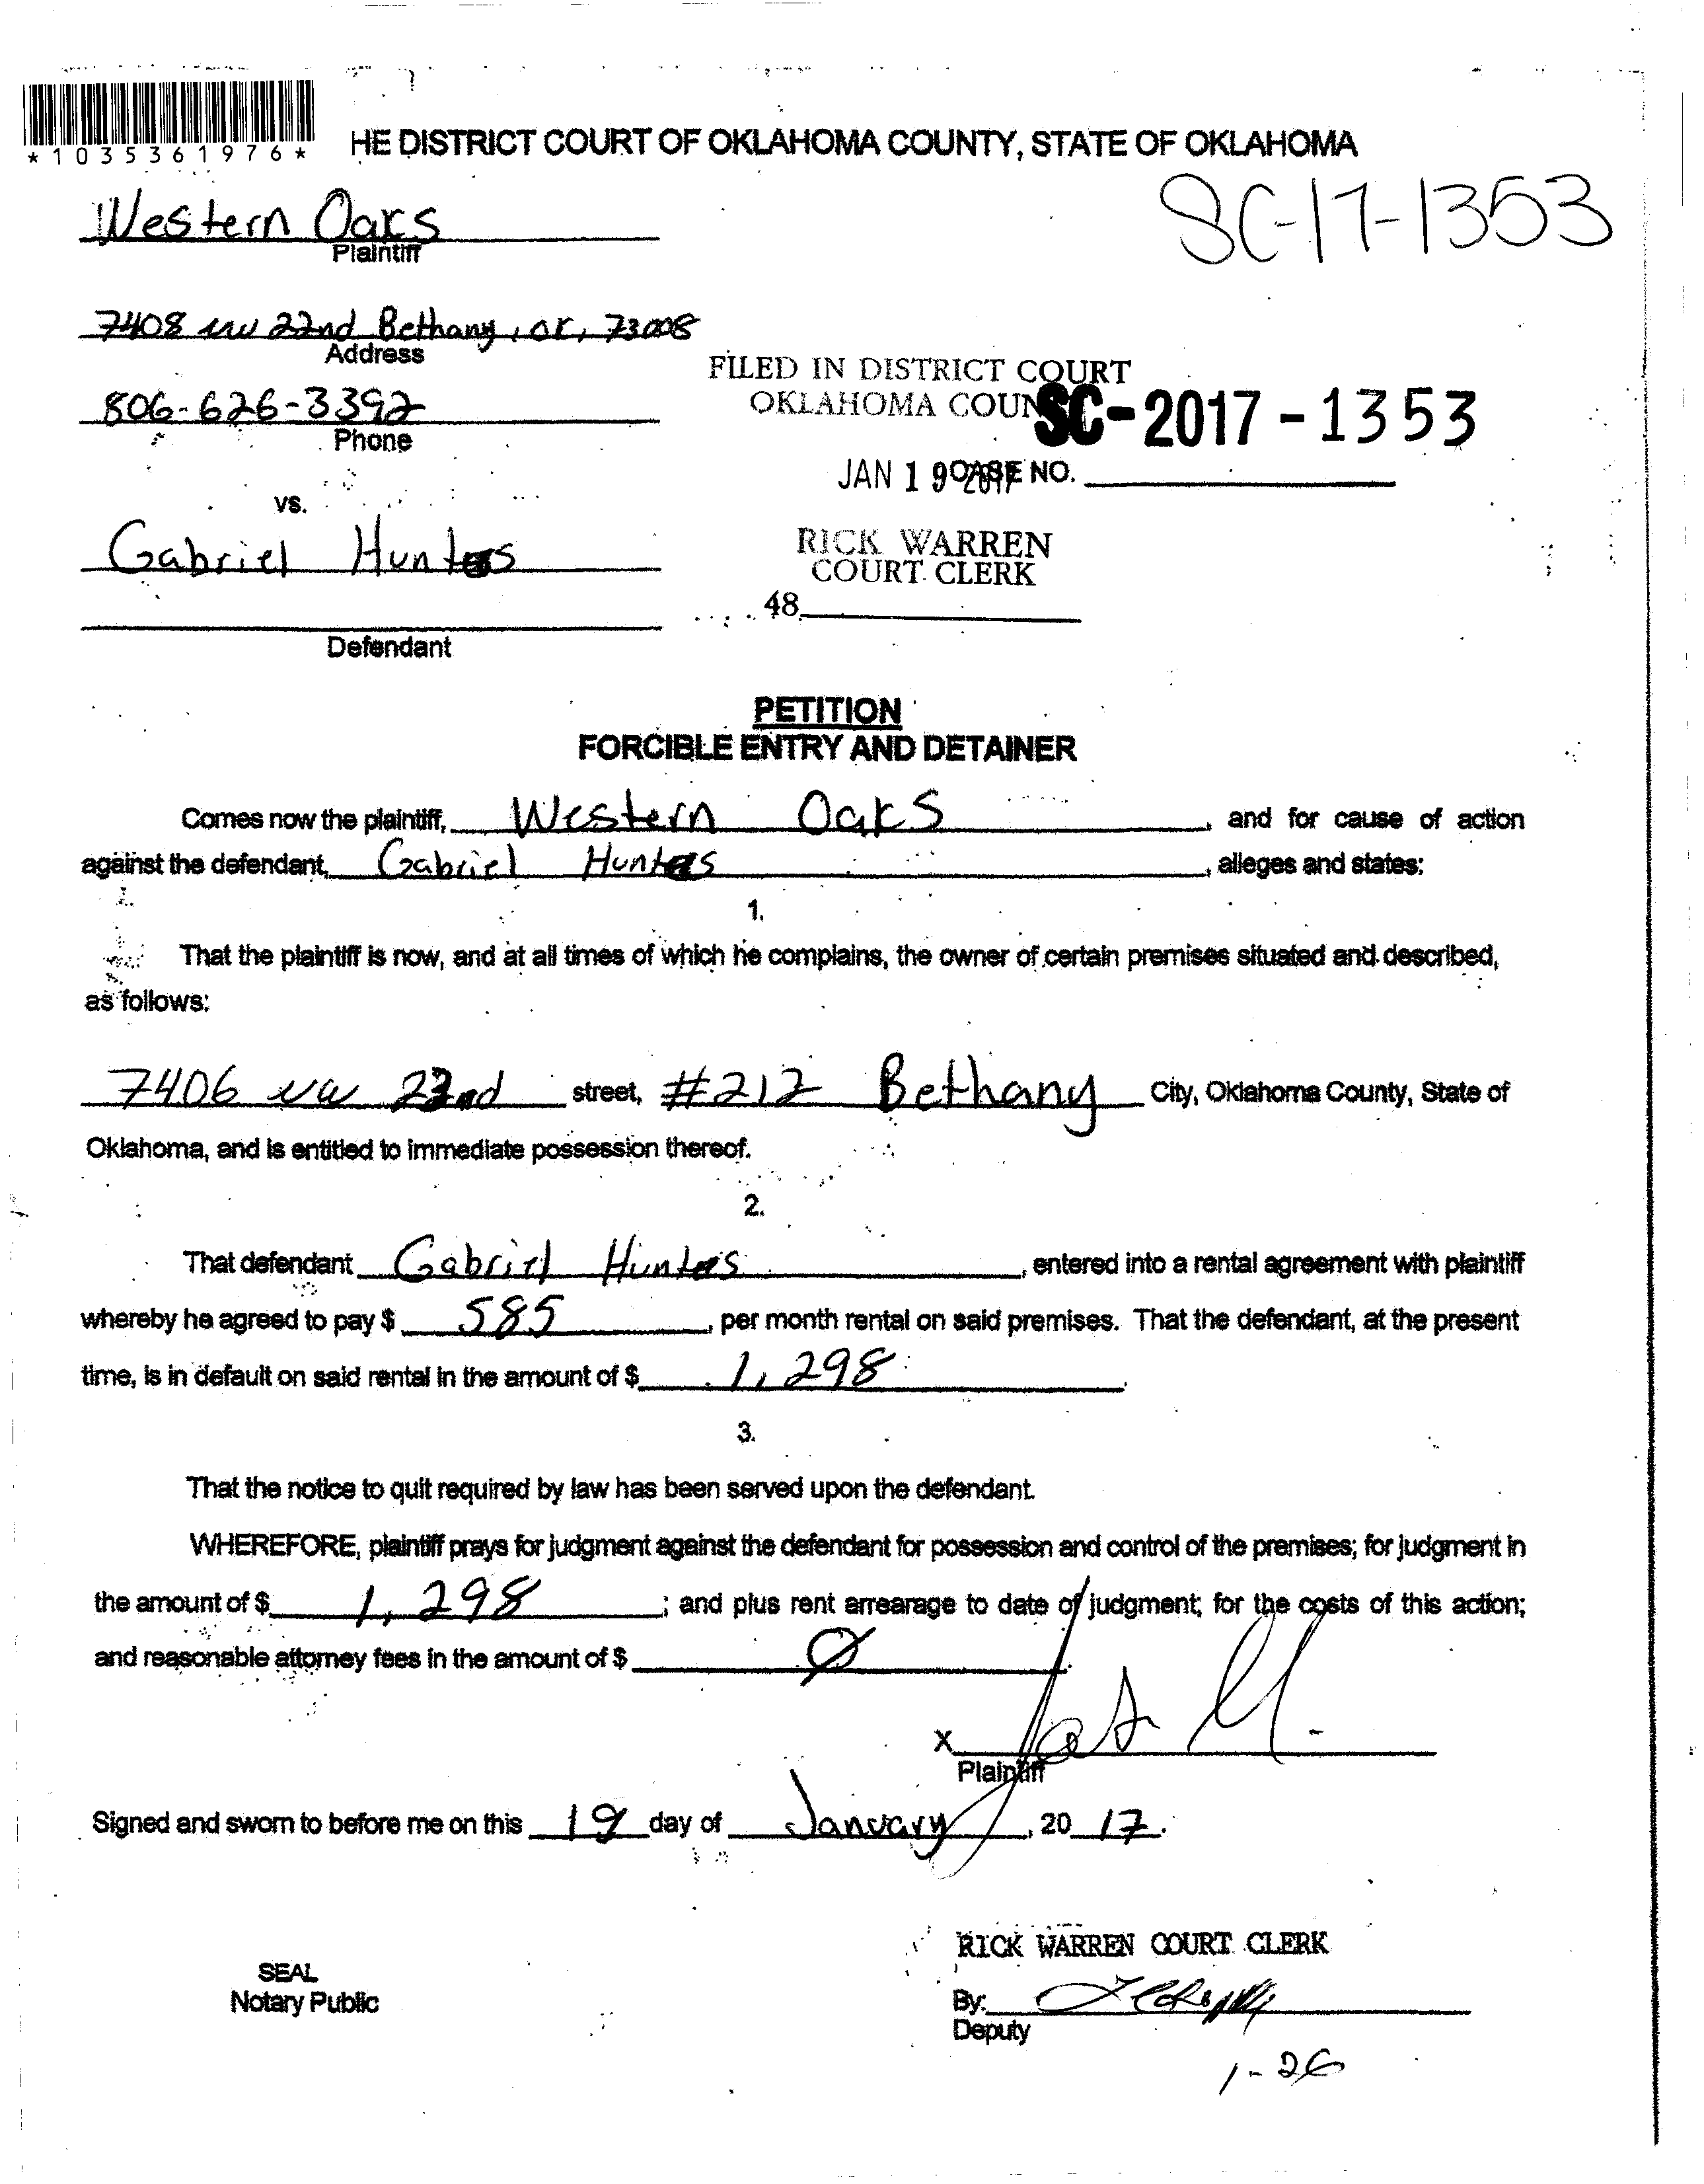 *1035361976*
HE DISTRICT COURT OF OKLAHOMA COUNTY, STATE OF OKLAHOMA
SC-17-1353
Western Oaks
Plaintiff
7408 NW 22nd Bethany, OK, 73008
Address
806-626-3392
Phone
FILED IN DISTRICT COURT
OKLAHOMA COUN
SC-2017-1353
JAN 19 2017
CASE NO.
vs.
Gabriel Hunters
Defendant
RICK WARREN
COURT CLERK
48
PETITION
FORCIBLE ENTRY AND DETAINER
Comes now the plaintiff, Western Oaks, and for cause of action
against the defendant, Gabriel Hunters, alleges and states:
1.
That the plaintiff is now, and at all times of which he complains, the owner of certain premises situated and described,
as follows:
7406 NW 22nd street, #212 Bethany City, Oklahoma County, State of
Oklahoma, and is entitled to immediate possession thereof.
2.
That defendant Gabriel Hunters, entered into a rental agreement with plaintiff
whereby he agreed to pay $ 585, per month rental on said premises. That the defendant, at the present
time, is in default on said rental in the amount of $ 1,298.
3.
That the notice to quit required by law has been served upon the defendant.
WHEREFORE, plaintiff prays for judgment against the defendant for possession and control of the premises; for judgment in
the amount of $ 1,298; and plus rent arrearage to date of judgment; for the costs of this action;
and reasonable attorney fees in the amount of $ Ø.
X
Plaintiff
Signed and sworn to before me on this 19 day of January, 20 17.
RICK WARREN COURT CLERK
SEAL
Notary Public
By:
Deputy
1-26